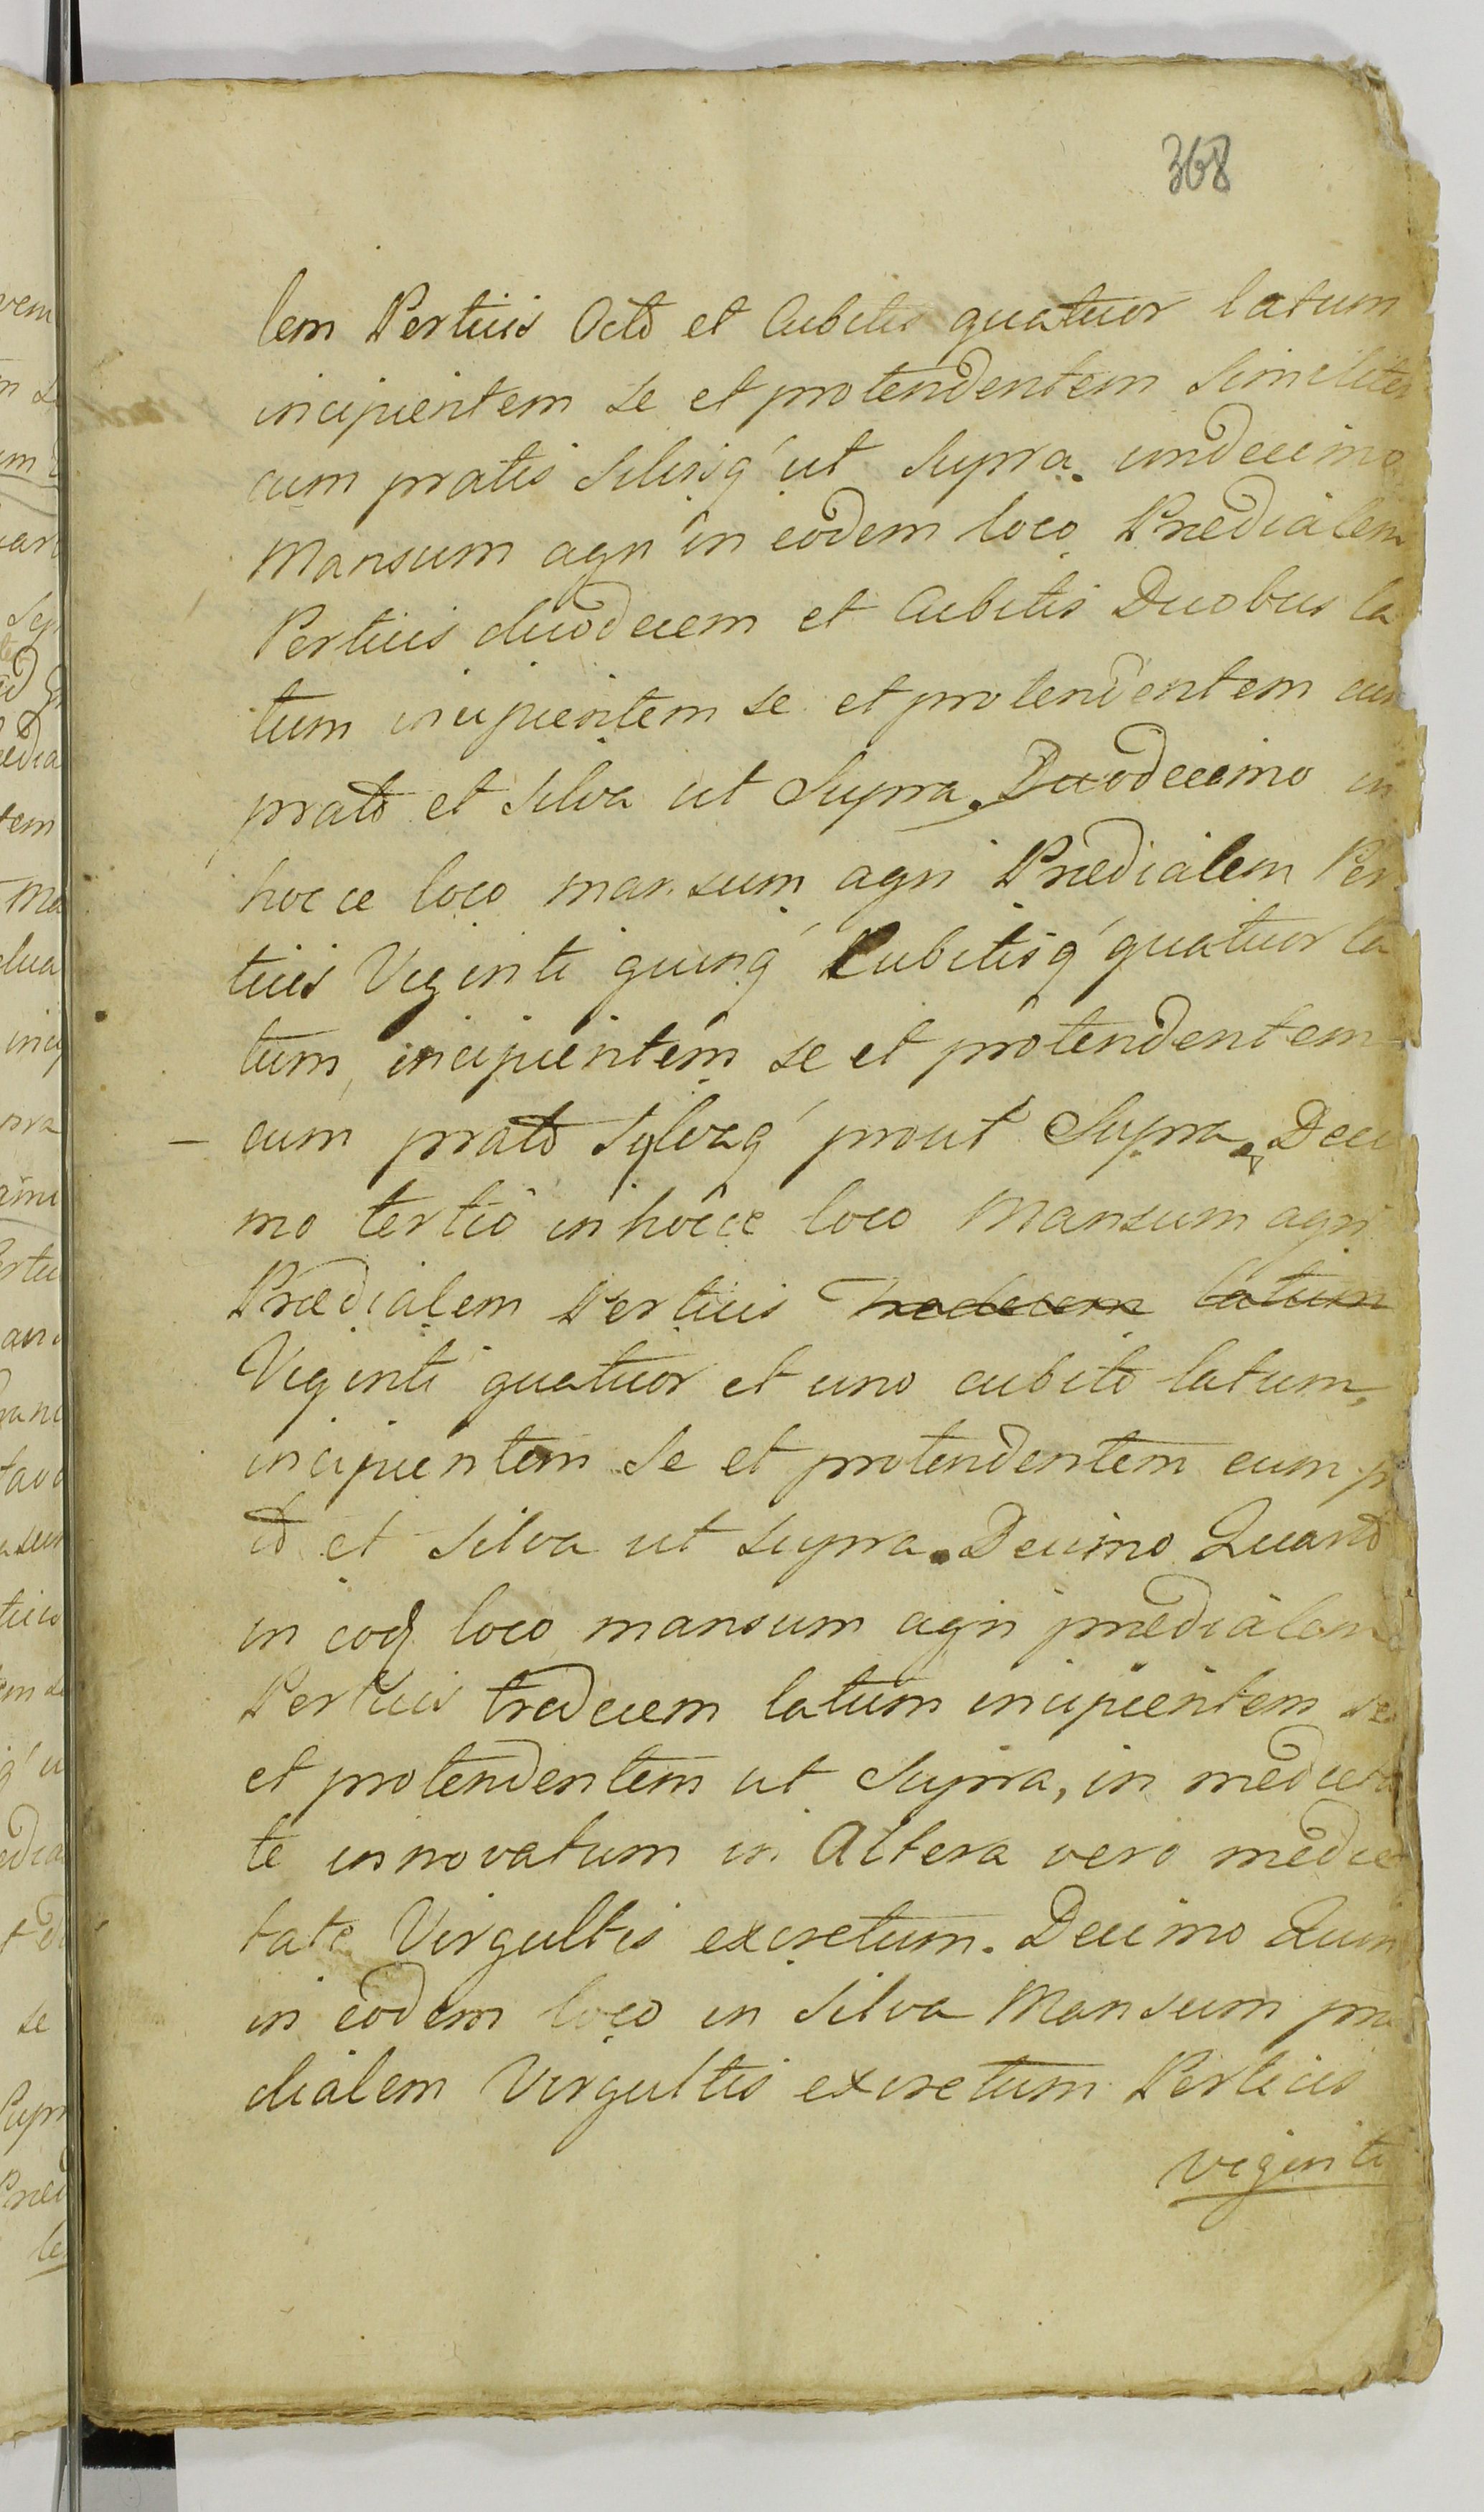 368
lem Perticis Octo et Cubitis quatuor latum
incipientem se et protendentem Similiter
cum pratis Silisq' ut Supra. undecimo
Mansum agri in eodem loco Prædialem
Perticis duodecem et Cubitis Duobus la
tum incipientem se et protendentem cum
prato et Silva ut Supra. Duodecimo in
hocce loco mansum agri Prædialem Per
ticis Viginti quinq' Cubitisq' quatuor la
tum, incipientem se et protendentem
cum prato Sylvaq' prout Supra. Deci
mo tertio in hocce loco Mansum agri
Prædialem Perticis Tredecem latum
Viginti quatuor et uno cubito latum,
incipientem Se et protendentem cum p
to et Silva ut supra. Decimo Quarto
in eod loco mansum agri prædialem
Perticis tredecem latum incipientem se
et protendentem ut Supra, in medieta
te innovatum in Altera vero medie
tate Virgultis excretum. Decimo Quin
in eodem loco in Silva Mansum præ
dialem Virgultis excretum Perticis
viginti